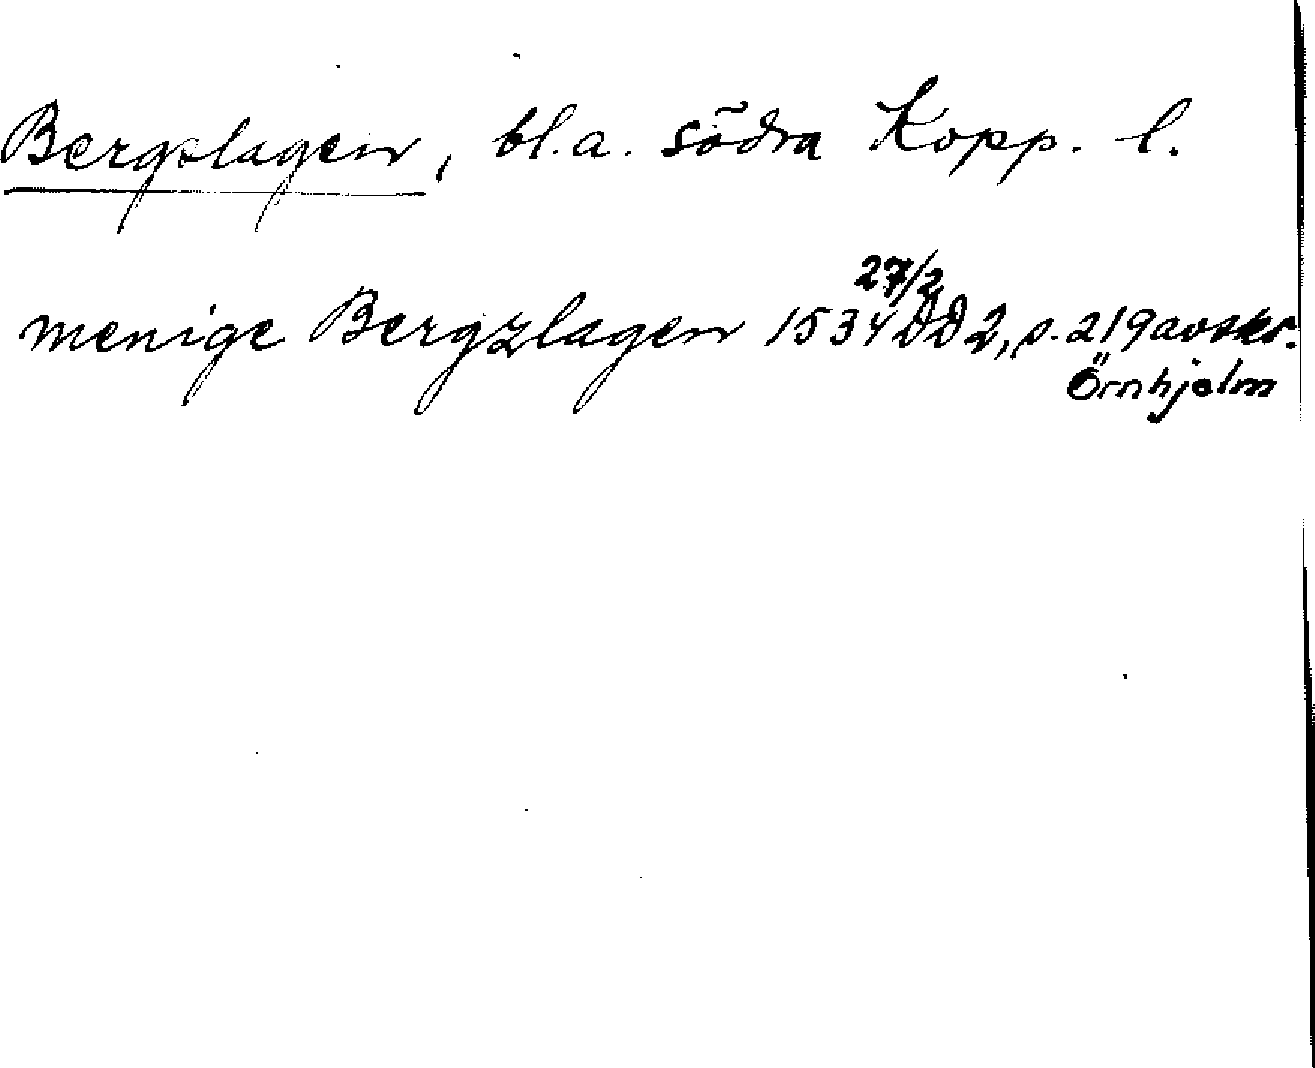 Bergslagen, bl.a. södra Kopp. l.
menige Bergzlagen 1534 27/2 DD 2, s. 219 avskr.
Örnhjelm